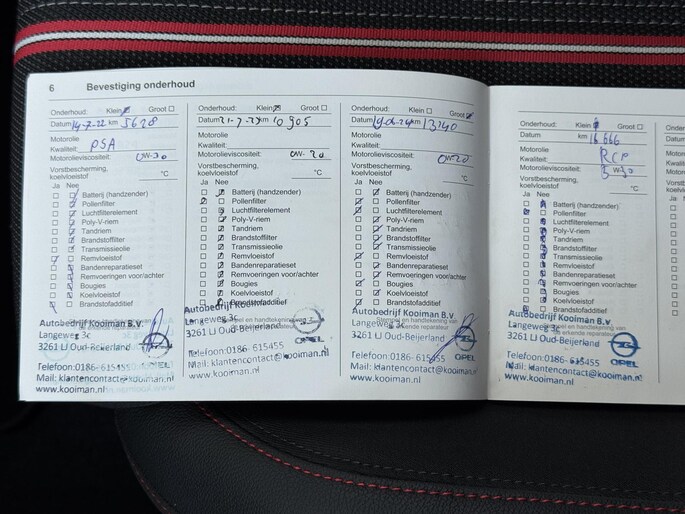 6 Bevestiging onderhoud
Onderhoud: Klein Groot
Datum 14-7-22 km 5628
Motorolie
Kwaliteit: PSA
Motorolieviscositeit: 0W-30
Vorstbescherming,
koelvloeistof °C
Ja Nee
Batterij (handzender)
Pollenfilter
Luchtfilterelement
Poly-V-riem
Tandriem
Brandstoffilter
Transmissieolie
Remvloeistof
Bandenreparatieset
Remvoeringen voor/achter
Bougies
Koelvloeistof
Brandstofadditief
Autobedrijf Kooiman B.V.
Langeweg 3c
3261 LJ Oud-Beijerland
Telefoon:0186- 615455
Mail: klantencontact@kooiman.nl
www.kooiman.nl
OPEL
Onderhoud: Klein Groot
Datum 21-7-23 km 10905
Motorolie
Kwaliteit:
Motorolieviscositeit: 0W-20
Vorstbescherming,
koelvloeistof °C
Ja Nee
Batterij (handzender)
Pollenfilter
Luchtfilterelement
Poly-V-riem
Tandriem
Brandstoffilter
Transmissieolie
Remvloeistof
Bandenreparatieset
Remvoeringen voor/achter
Bougies
Koelvloeistof
Brandstofadditief
Autobedrijf Kooiman B.V.
Langeweg 3c
3261 LJ Oud-Beijerland
Telefoon:0186- 615455
Mail: klantencontact@kooiman.nl
www.kooiman.nl
OPEL
Onderhoud: Klein Groot
Datum 19-06-24 km 13140
Motorolie
Kwaliteit:
Motorolieviscositeit: 0W-20
Vorstbescherming,
koelvloeistof °C
Ja Nee
Batterij (handzender)
Pollenfilter
Luchtfilterelement
Poly-V-riem
Tandriem
Brandstoffilter
Transmissieolie
Remvloeistof
Bandenreparatieset
Remvoeringen voor/achter
Bougies
Koelvloeistof
Brandstofadditief
Autobedrijf Kooiman B.V.
Langeweg 3c
3261 LJ Oud-Beijerland
Telefoon:0186- 615455
Mail: klantencontact@kooiman.nl
www.kooiman.nl
OPEL
Onderhoud: Klein Groot
Datum km 16666
Motorolie
Kwaliteit:
Motorolieviscositeit: 5W-30
Vorstbescherming,
koelvloeistof °C
Ja Nee
Batterij (handzender)
Pollenfilter
Luchtfilterelement
Poly-V-riem
Tandriem
Brandstoffilter
Transmissieolie
Remvloeistof
Bandenreparatieset
Remvoeringen voor/achter
Bougies
Koelvloeistof
Brandstofadditief
Autobedrijf Kooiman B.V.
Langeweg 3c
3261 LJ Oud-Beijerland
Telefoon:0186- 615455
Mail: klantencontact@kooiman.nl
www.kooiman.nl
OPEL